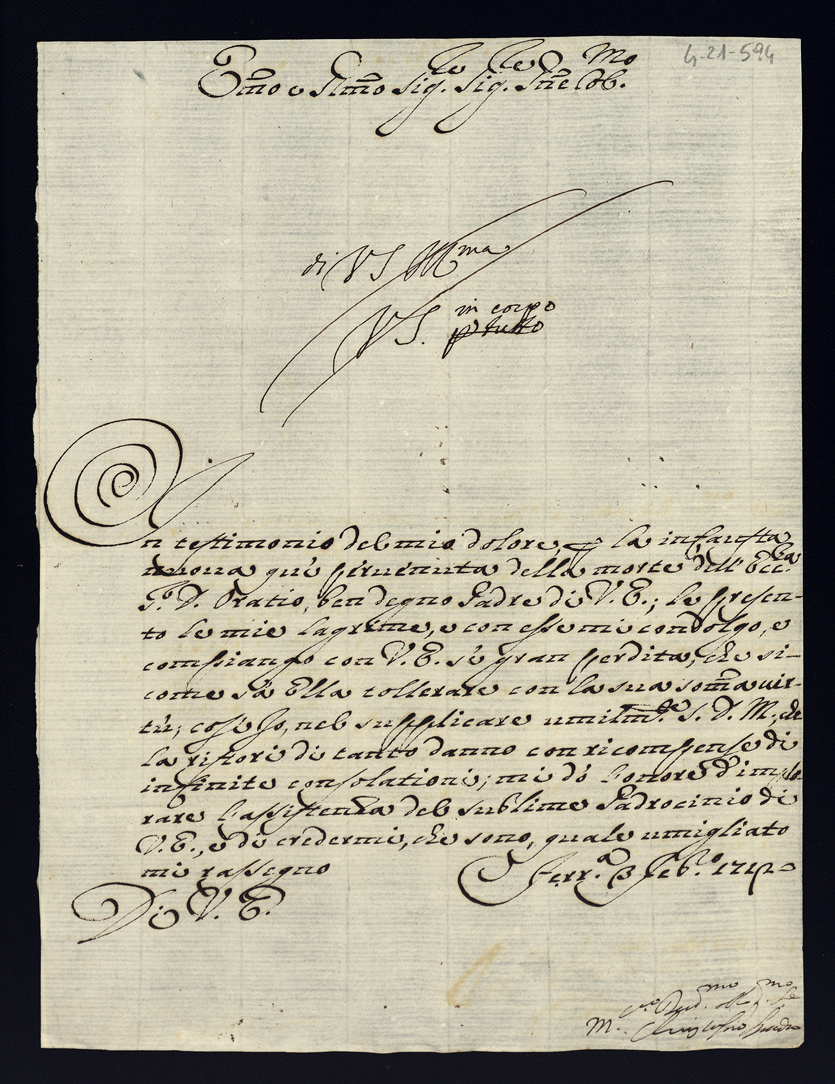 4-21-594
Em̃o e Ill̃mo Sig.re Sig.re P̃ne Col.mo
di VS Ill.ma
VS. in corpo
p tutto
In testimonio del mio dolore, p la infausta
nuova qui pervenuta della morte dell' Ecc.za
S.r D. Oratio, ben degno Padre di V. E.; le presen-
to le mie lagrime, e con esse mi condolgo, e
compiango con V. E. sì gran perdita, che si-
come sà Ella tollerare con la sua som̃a vir-
tù; così Io, nel supplicare umilm.te S. D. M., che
la ristori di tanto danno con ricompense di
infinite consolationi; mi dò l'onore d'implo-
rare l'assistenza del sublime Padrocinio di
V. E., e di credermi, che sono, quale umigliato
mi rassegno
Di V. E.
Ferr.a 3 Feb.o 171